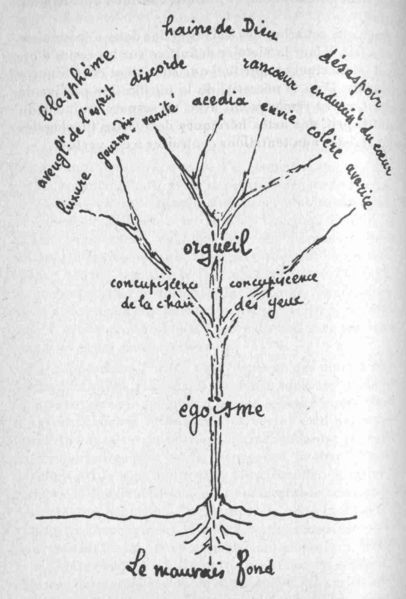 haine de Dieu
blasphème
discorde
rancœur
désespoir
aveuglt de l'esprit
endurcist du cœur
luxure
gourmdise
vanité
acedia
envie
colère
avarice
orgueil
concupiscence
de la chair
concupiscence
des yeux
égoïsme
Le mauvais fond